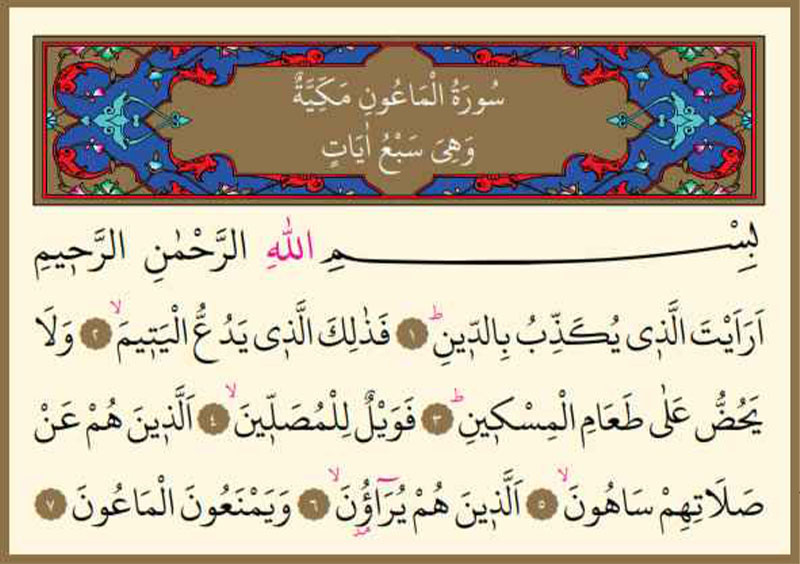 سُورَةُ الْمَاعُونِ مَكِّيَّةٌ
وَهِىَ سَبْعُ اٰيَاتٍ
بِسْــــــــــــمِ اللّٰهِ الرَّحْمٰنِ الرَّح۪يمِ
اَرَاَيْتَ الَّذ۪ى يُكَذِّبُ بِالدّ۪ينِۜ ﴿١﴾ فَذٰلِكَ الَّذ۪ى يَدُعُّ الْيَت۪يمَۙ ﴿٢﴾ وَلَا
يَحُضُّ عَلٰى طَعَامِ الْمِسْك۪ينِۜ ﴿٣﴾ فَوَيْلٌ لِلْمُصَلّ۪ينَۙ ﴿٤﴾ اَلَّذ۪ينَ هُمْ عَنْ
صَلَاتِهِمْ سَاهُونَۙ ﴿٥﴾ اَلَّذ۪ينَ هُمْ يُرَٓاؤُ۫نَۙ ﴿٦﴾ وَيَمْنَعُونَ الْمَاعُونَ ﴿٧﴾